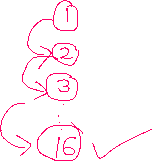 1
2
3
16